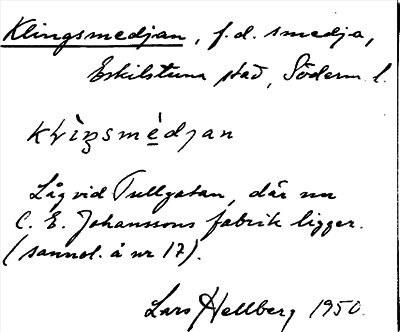 Klingsmedjan, f.d. smedja,
Eskilstuna stad, Söderm. l.
klìŋsmèdjan
Låg vid Tullgatan, där nu
C. E. Johanssons fabrik ligger.
(sannol. å nr 17).
Lars Hellberg 1950.